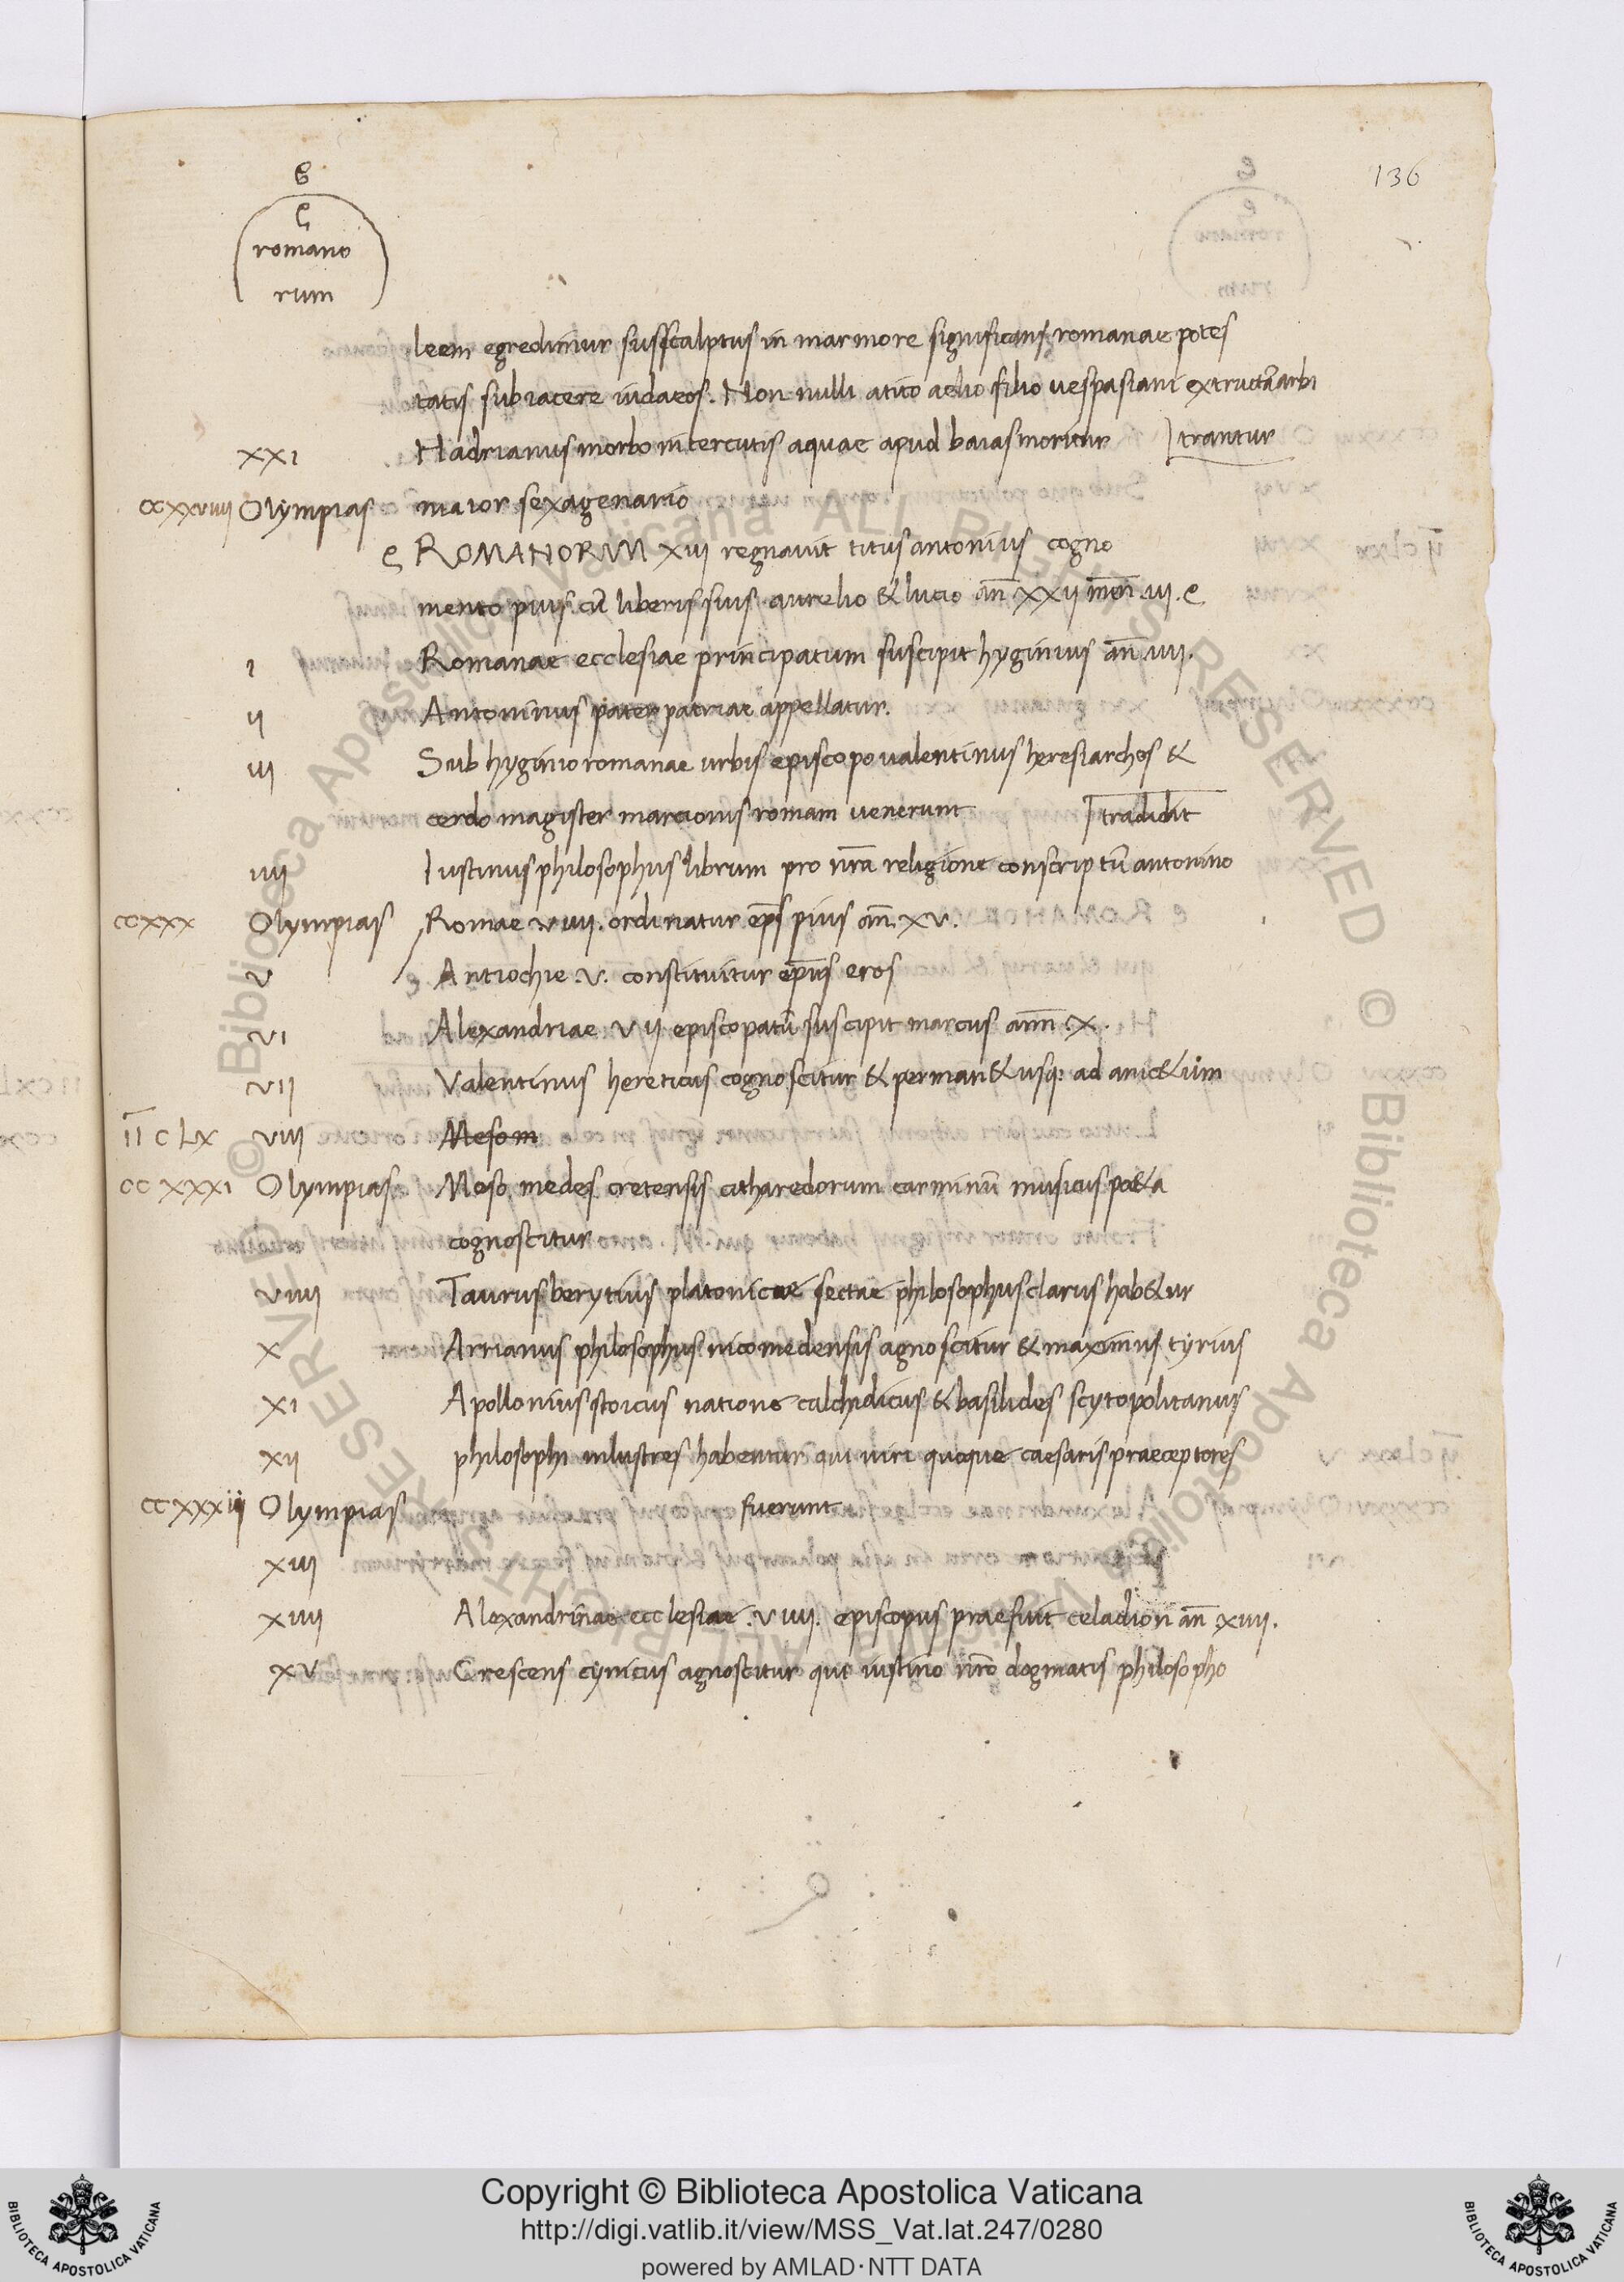 136
romano
rum
leem egredimur susscalptus in marmore significans romanae potes
tatis subiacere iudaeos. Non nulli atito aelio filio uespasiani extructā arbi
trantur
xxi Hadrianus morbo intercutis aquae apud baias moritur
ccxxviiii Olympias maior sexagenario
ROMANORUM xiii regnauit titus antonius cogno
mento pius cū liberis suis aurelio & lucio an̄ xxii
i Romanae ecclesiae principatum suscipit hyginius an̄ iiii.
ii Antoninus pater patriae appellatur.
iii Sub hyginio romanae urbis episcopo ualentinus heresiarches &
cerdo magister marcionis romam uenerunt
tradidit
iiii Iustinus philosophus librum pro nr̄a religione conscriptū antonino
ccxxx Olympias Romae viiii. ordinatur ep̄s pius an̄. xv.
v Antiochie .v. constituitur eros
vi Alexandriae vii episcopatū suscipit marcus ann̄. x.
vii Valentinus hereticus cognoscitur & perman& usq; ad anic&ūm
īī c Lx viii Mesom
cc xxxi Olympias Meso medes cretensis citharedorum carminū musicus po&a
cognoscitur
viiii Taurus berytius platonicae sectae philosophus clarus hab&ur
x Arrianus philosophus nicomedensis agnoscitur & maximus tyrius
xi Apollonius stoicus natione calchidicus & basilides scytopolitanus
xii philosophi inlustres habentur qui uiri quoque caesaris praeceptores
ccxxxii Olympias fuerunt
xiii
xiiii Alexandrinae ecclesiae .viiii. episcopus praefuit celadion an̄ xiiii.
xv Crescens cynicus agnoscitur qui iustino nr̄o dogmatis philosopho
Copyright © Biblioteca Apostolica Vaticana
http://digi.vatlib.it/view/MSS_Vat.lat.247/0280
powered by AMLAD·NTT DATA
BIBLIOTECA APOSTOLICA VATICANA
BIBLIOTECA APOSTOLICA VATICANA
© Biblioteca Apostolica Vaticana ALL RIGHTS RESERVED
© Biblioteca Apostolica Vaticana ALL RIGHTS RESERVED